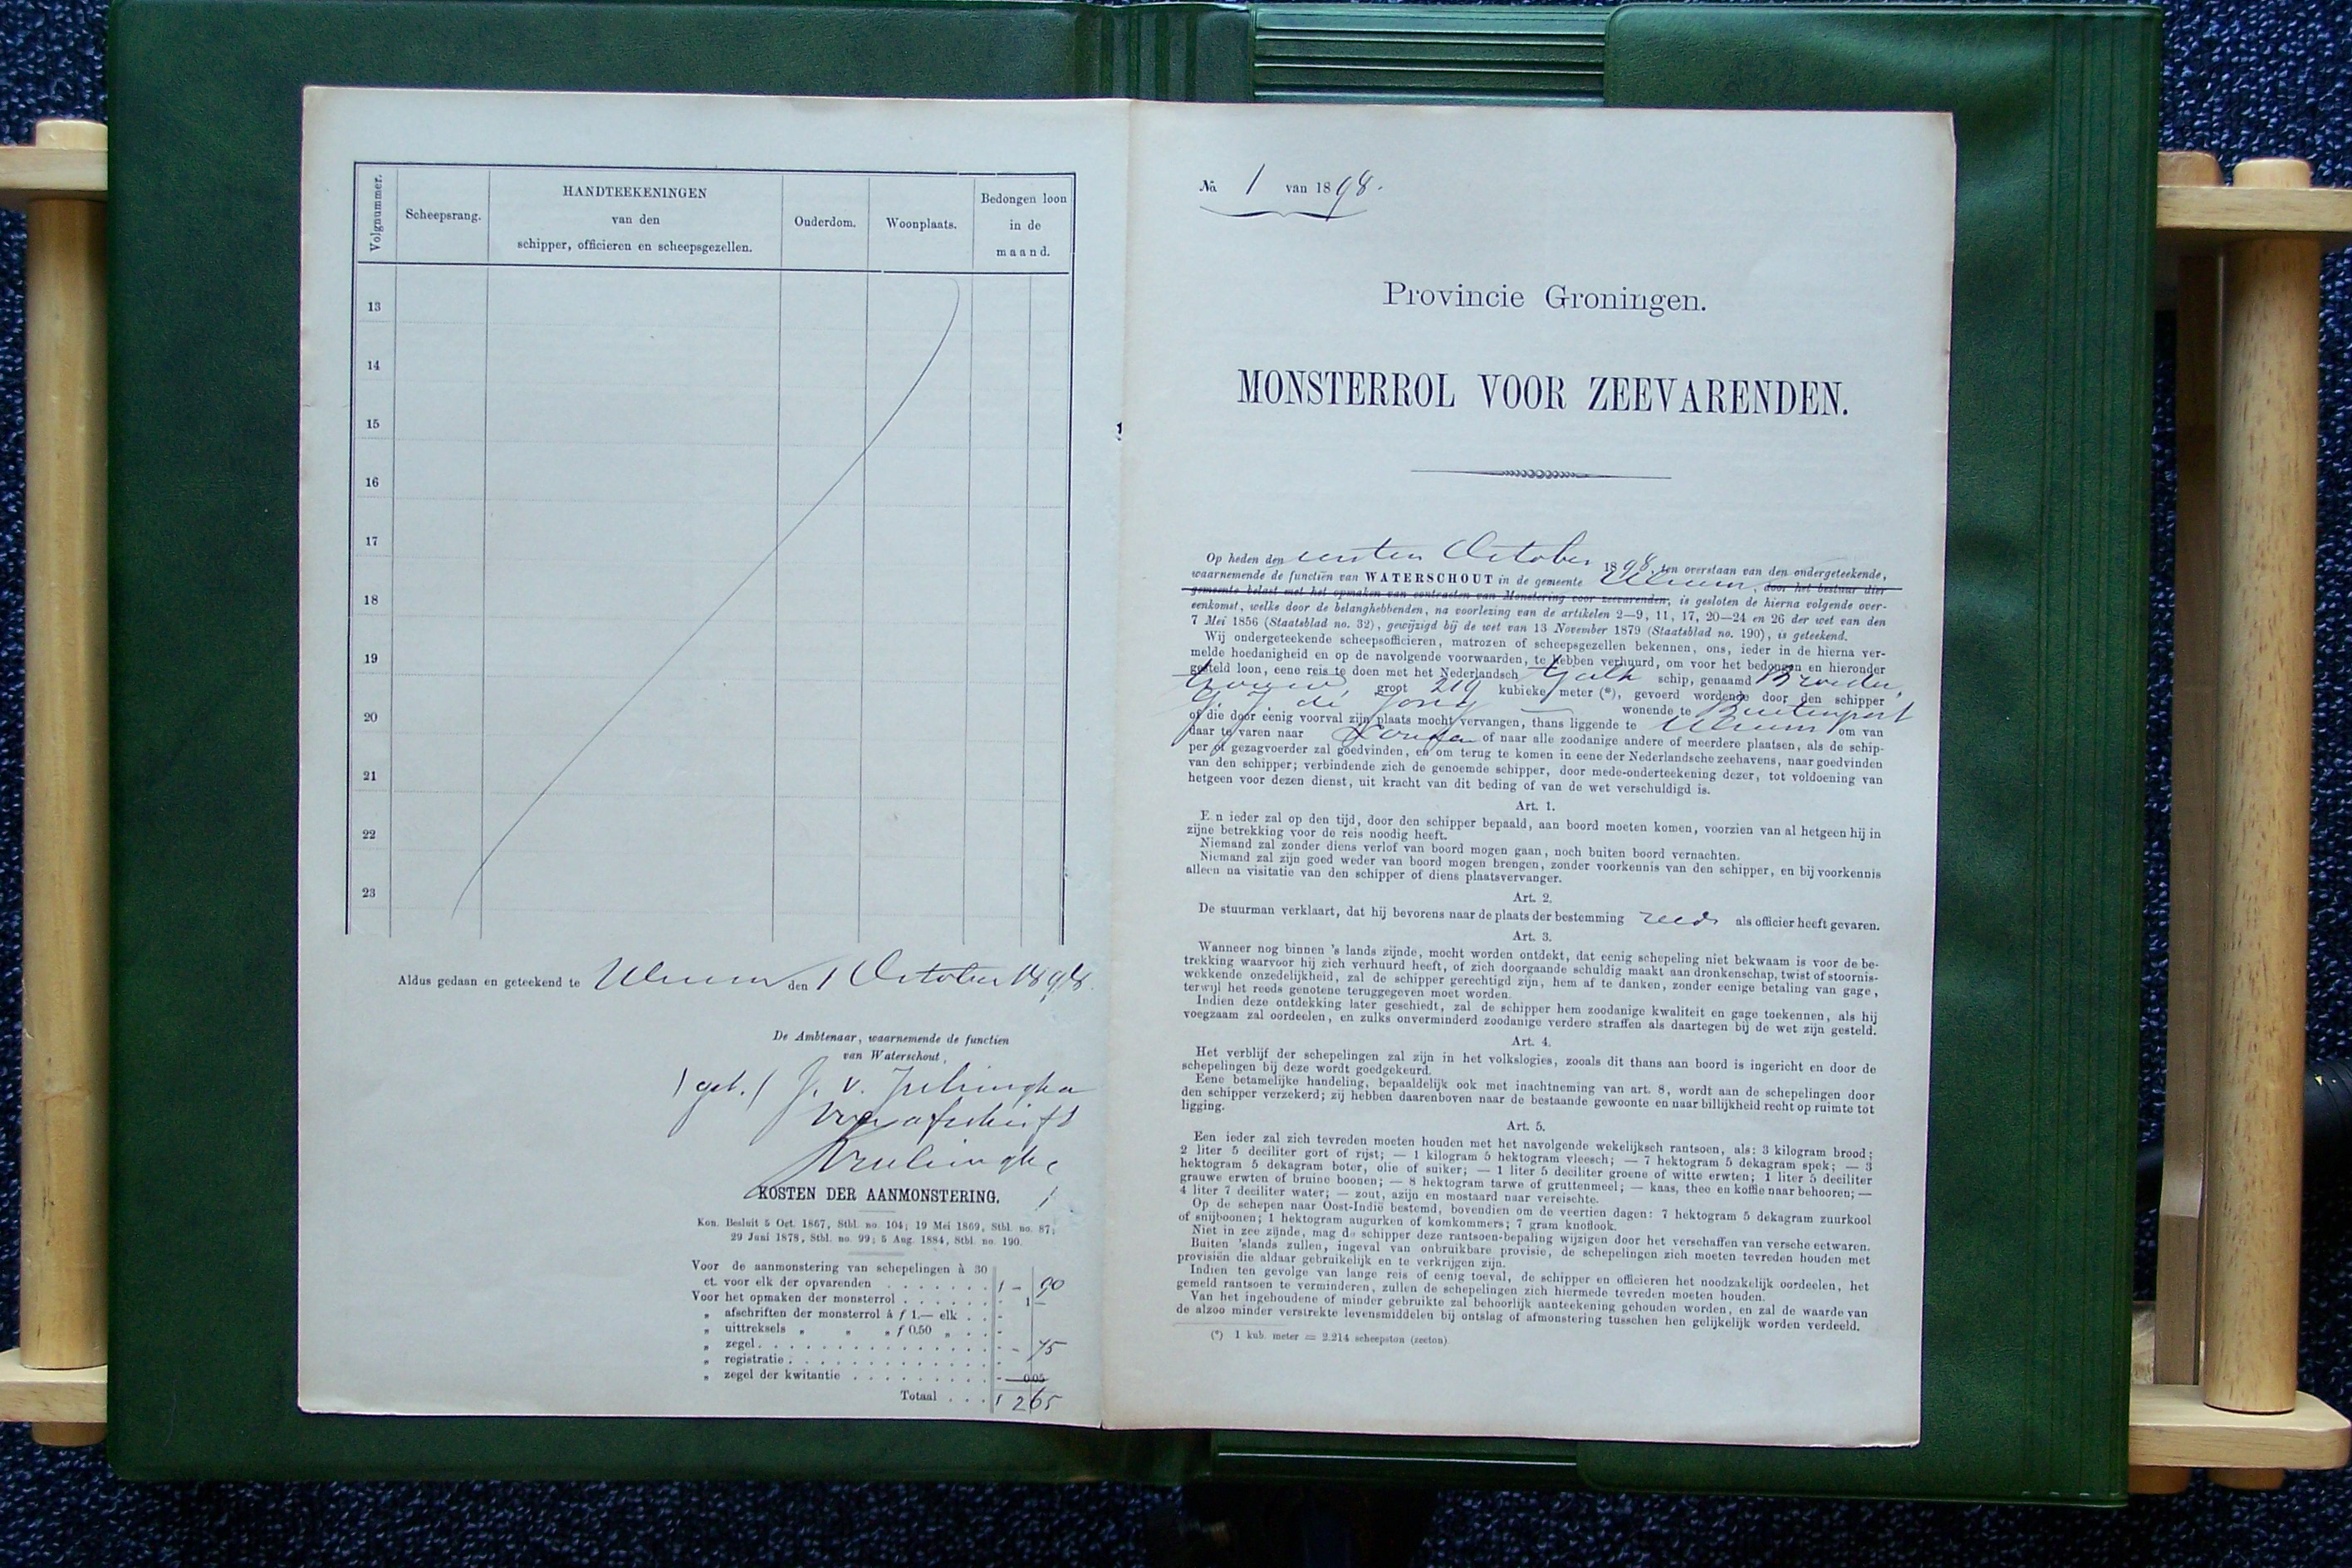 Volgnummer.
Scheepsrang.
HANDTEEKENINGEN
van den
schipper, officieren en scheepsgezellen.
Ouderdom.
Woonplaats.
Bedongen loon
in de
maand.
13
14
15
16
17
18
19
20
21
22
23
Aldus gedaan en geteekend te Ulrum den 1 October 1898.
De Ambtenaar, waarnemende de functien
van Waterschout,
(get.) J. v.
Voor afschrift
KOSTEN DER AANMONSTERING.
Kon. Besluit 5 Oct. 1867, Stbl. no. 104; 19 Mei 1869, Stbl. no. 87;
29 Juni 1878, Stbl. no. 99; 5 Aug. 1884, Stbl. no. 190.
Voor de aanmonstering van schepelingen à 30
ct. voor elk der opvarenden . . . . . . . f - 90
Voor het opmaken der monsterrol . . . . . . - 1 -
„ afschriften der monsterrol à f 1.— elk . . -
„ uittreksels „ „ „ f 0.50 „ . . -
„ zegel . . . . . . . . . . . . . . . . - - 75
„ registratie . . . . . . . . . . . . . . -
„ zegel der kwitantie . . . . . . . . . - 0.05
Totaal . . . f 2 65
No. 1 van 1898.
Provincie Groningen.
MONSTERROL VOOR ZEEVARENDEN.
Op heden den eersten October 1898, ten overstaan van den ondergeteekende,
waarnemende de functiën van WATERSCHOUT in de gemeente Ulrum, door het bestuur dier
gemeente belast met het opmaken van contracten van Monstering voor zeevarenden, is gesloten de hierna volgende over-
eenkomst, welke door de belanghebbenden, na voorlezing van de artikelen 2—9, 11, 17, 20—24 en 26 der wet van den
7 Mei 1856 (Staatsblad no. 32), gewijzigd bij de wet van 13 November 1879 (Staatsblad no. 190), is geteekend.
Wij ondergeteekende scheepsofficieren, matrozen of scheepsgezellen bekennen, ons, ieder in de hierna ver-
melde hoedanigheid en op de navolgende voorwaarden, te hebben verhuurd, om voor het bedongen en hieronder
gesteld loon, eene reis te doen met het Nederlandsch Tjalk schip, genaamd Broeder
trouw, groot 219 kubieke meter (*), gevoerd wordende door den schipper
J. de Jong wonende te Buitenpost
of die door eenig voorval zijn plaats mocht vervangen, thans liggende te Ulrum om van
daar te varen naar of naar alle zoodanige andere of meerdere plaatsen, als de schip-
per of gezagvoerder zal goedvinden, en om terug te komen in eene der Nederlandsche zeehavens, naar goedvinden
van den schipper; verbindende zich de genoemde schipper, door mede-onderteekening dezer, tot voldoening van
hetgeen voor dezen dienst, uit kracht van dit beding of van de wet verschuldigd is.
Art. 1.
E n ieder zal op den tijd, door den schipper bepaald, aan boord moeten komen, voorzien van al hetgeen hij in
zijne betrekking voor de reis noodig heeft.
Niemand zal zonder diens verlof van boord mogen gaan, noch buiten boord vernachten.
Niemand zal zijn goed weder van boord mogen brengen, zonder voorkennis van den schipper, en bij voorkennis
alleen na visitatie van den schipper of diens plaatsvervanger.
Art. 2.
De stuurman verklaart, dat hij bevorens naar de plaats der bestemming reeds als officier heeft gevaren.
Art. 3.
Wanneer nog binnen 's lands zijnde, mocht worden ontdekt, dat eenig schepeling niet bekwaam is voor de be-
trekking waarvoor hij zich verhuurd heeft, of zich doorgaande schuldig maakt aan dronkenschap, twist of stoornis-
wekkende onzedelijkheid, zal de schipper gerechtigd zijn, hem af te danken, zonder eenige betaling van gage,
terwijl het reeds genotene teruggegeven moet worden.
Indien deze ontdekking later geschiedt, zal de schipper hem zoodanige kwaliteit en gage toekennen, als hij
voegzaam zal oordeelen, en zulks onverminderd zoodanige verdere straffen als daartegen bij de wet zijn gesteld.
Art. 4.
Het verblijf der schepelingen zal zijn in het volkslogies, zooals dit thans aan boord is ingericht en door de
schepelingen bij deze wordt goedgekeurd.
Eene betamelijke handeling, bepaaldelijk ook met inachtneming van art. 8, wordt aan de schepelingen door
den schipper verzekerd; zij hebben daarenboven naar de bestaande gewoonte en naar billijkheid recht op ruimte tot
ligging.
Art. 5.
Een ieder zal zich tevreden moeten houden met het navolgende wekelijksch rantsoen, als: 3 kilogram brood;
2 liter 5 deciliter gort of rijst; — 1 kilogram 5 hektogram vleesch; — 7 hektogram 5 dekagram spek; — 3
hektogram 5 dekagram boter, olie of suiker; — 1 liter 5 deciliter groene of witte erwten; 1 liter 5 deciliter
grauwe erwten of bruine boonen; — 8 hektogram tarwe of gruttenmeel; — kaas, thee en koffie naar behooren; —
4 liter 7 deciliter water; — zout, azijn en mostaard naar vereischte.
Op de schepen naar Oost-Indië bestemd, bovendien om de veertien dagen: 7 hektogram 5 dekagram zuurkool
of snijboonen; 1 hektogram augurken of komkommers; 7 gram knoflook.
Niet in zee zijnde, mag de schipper deze rantsoen-bepaling wijzigen door het verschaffen van versche eetwaren.
Buiten 'slands zullen, ingeval van onbruikbare provisie, de schepelingen zich moeten tevreden houden met
provisiën die aldaar gebruikelijk en te verkrijgen zijn.
Indien ten gevolge van lange reis of eenig toeval, de schipper en officieren het noodzakelijk oordeelen, het
gemeld rantsoen te verminderen, zullen de schepelingen zich hiermede tevreden moeten houden.
Van het ingehoudene of minder gebruikte zal behoorlijk aanteekening gehouden worden, en zal de waarde van
de alzoo minder verstrekte levensmiddelen bij ontslag of afmonstering tusschen hen gelijkelijk worden verdeeld.
(*) 1 kub. meter = 2.214 scheepston (zeeton).